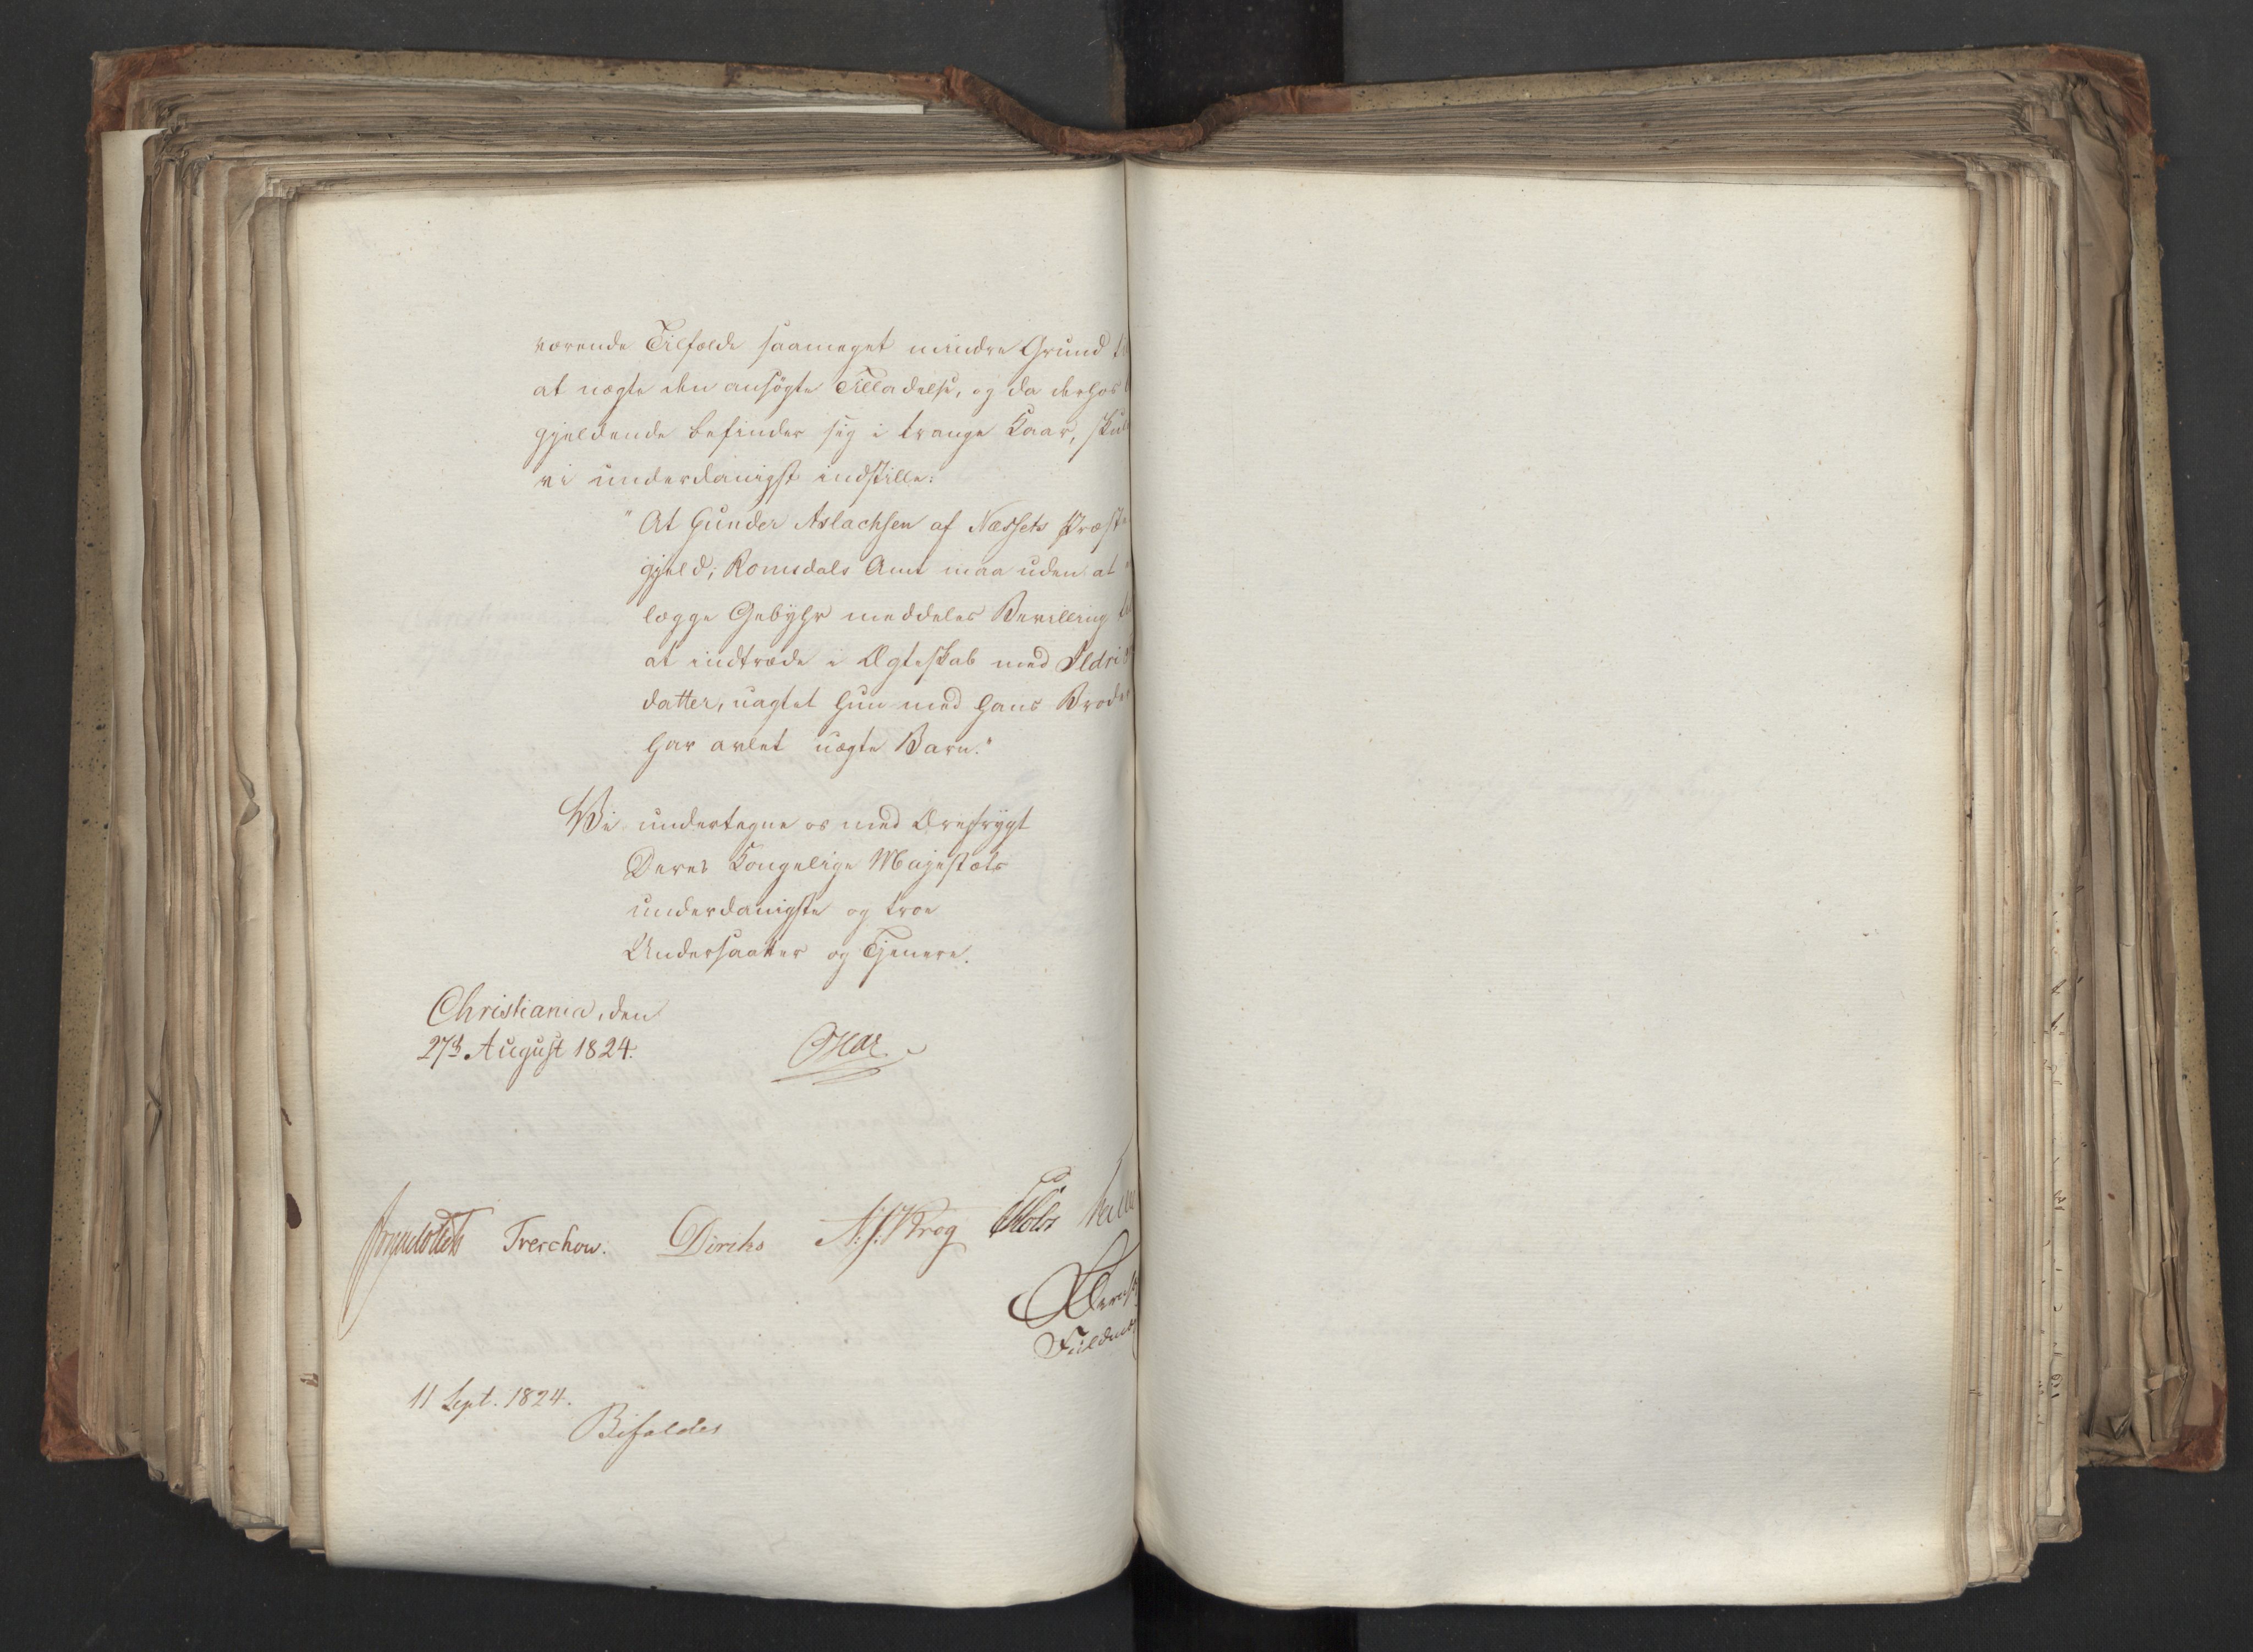 værende Tilfælde saameget mindre Grund
at nægte den ansøgte Tilladelse, og da derhos
gjeldende befinder sig i trange Kaar,
vi underdanigst indstille:
"At Gunder Aslachsen af Næssets Præste
gjeld, Romsdals Amt maa uden at
lægge Gebyhr meddeles Bevilling
at indtræde i Ægteskab med Ildri
datter, uagtet hun med hans Broder
har avlet uægte Barn."
Vi undertegne os med Ærefrygt
Deres Kongelige Majestæts
underdanigste og troe
Undersaatter og Tjenere.
Christiania, den
27d August 1824.
Oscar
Treschow. Diriks Krog
11 Sept. 1824.
Bifaldes